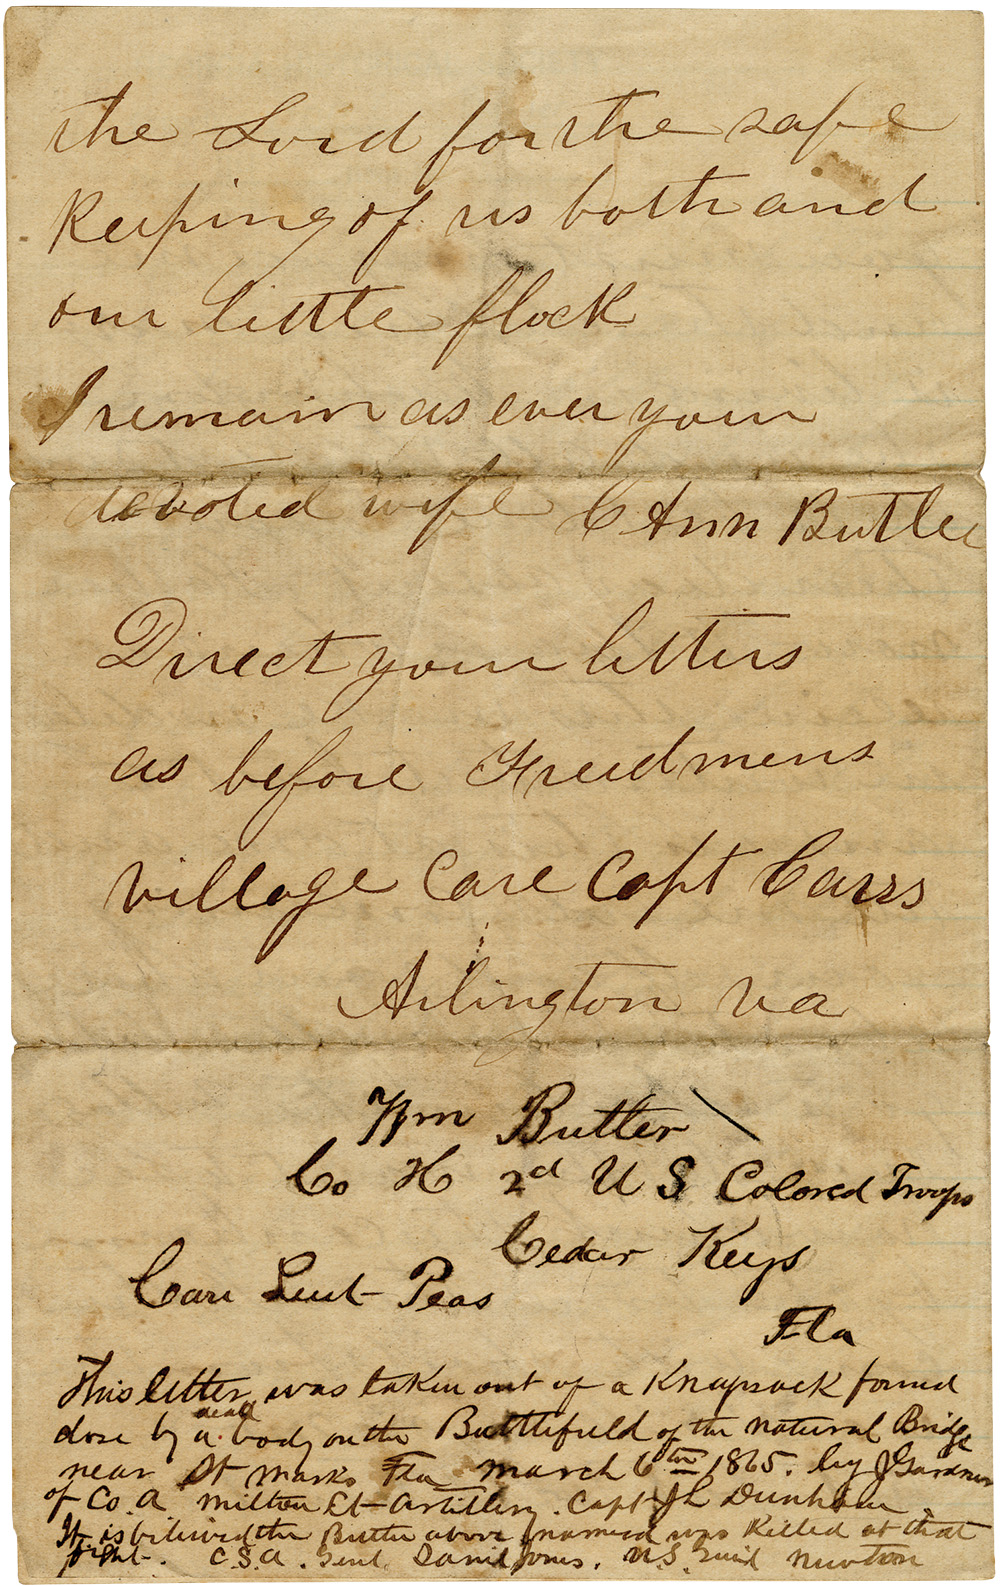 the Lord for the safe
Keeping of us both and
our little flock
I remain as ever your
devoted wife C Ann Butler
Direct your letters
as before Freedmens
village Care Capt Carrs
Arlington va
Wm Butler
Co H 2d U S Colored Troops
Cedar Keys
Care Lieut Peas
Fla
This letter was taken out of a Knapsack found
close by a dead body on the Battlefield of the natural Bridge
near St Marks Fla March 6th 1865. by J Gardner
of Co. A Milton Lt Artillery. Capt J L Dunham.
It is believed the Butler above named was Killed at that
fight. C.S.A. Genl. Sam Jones. U.S. Genl Newton